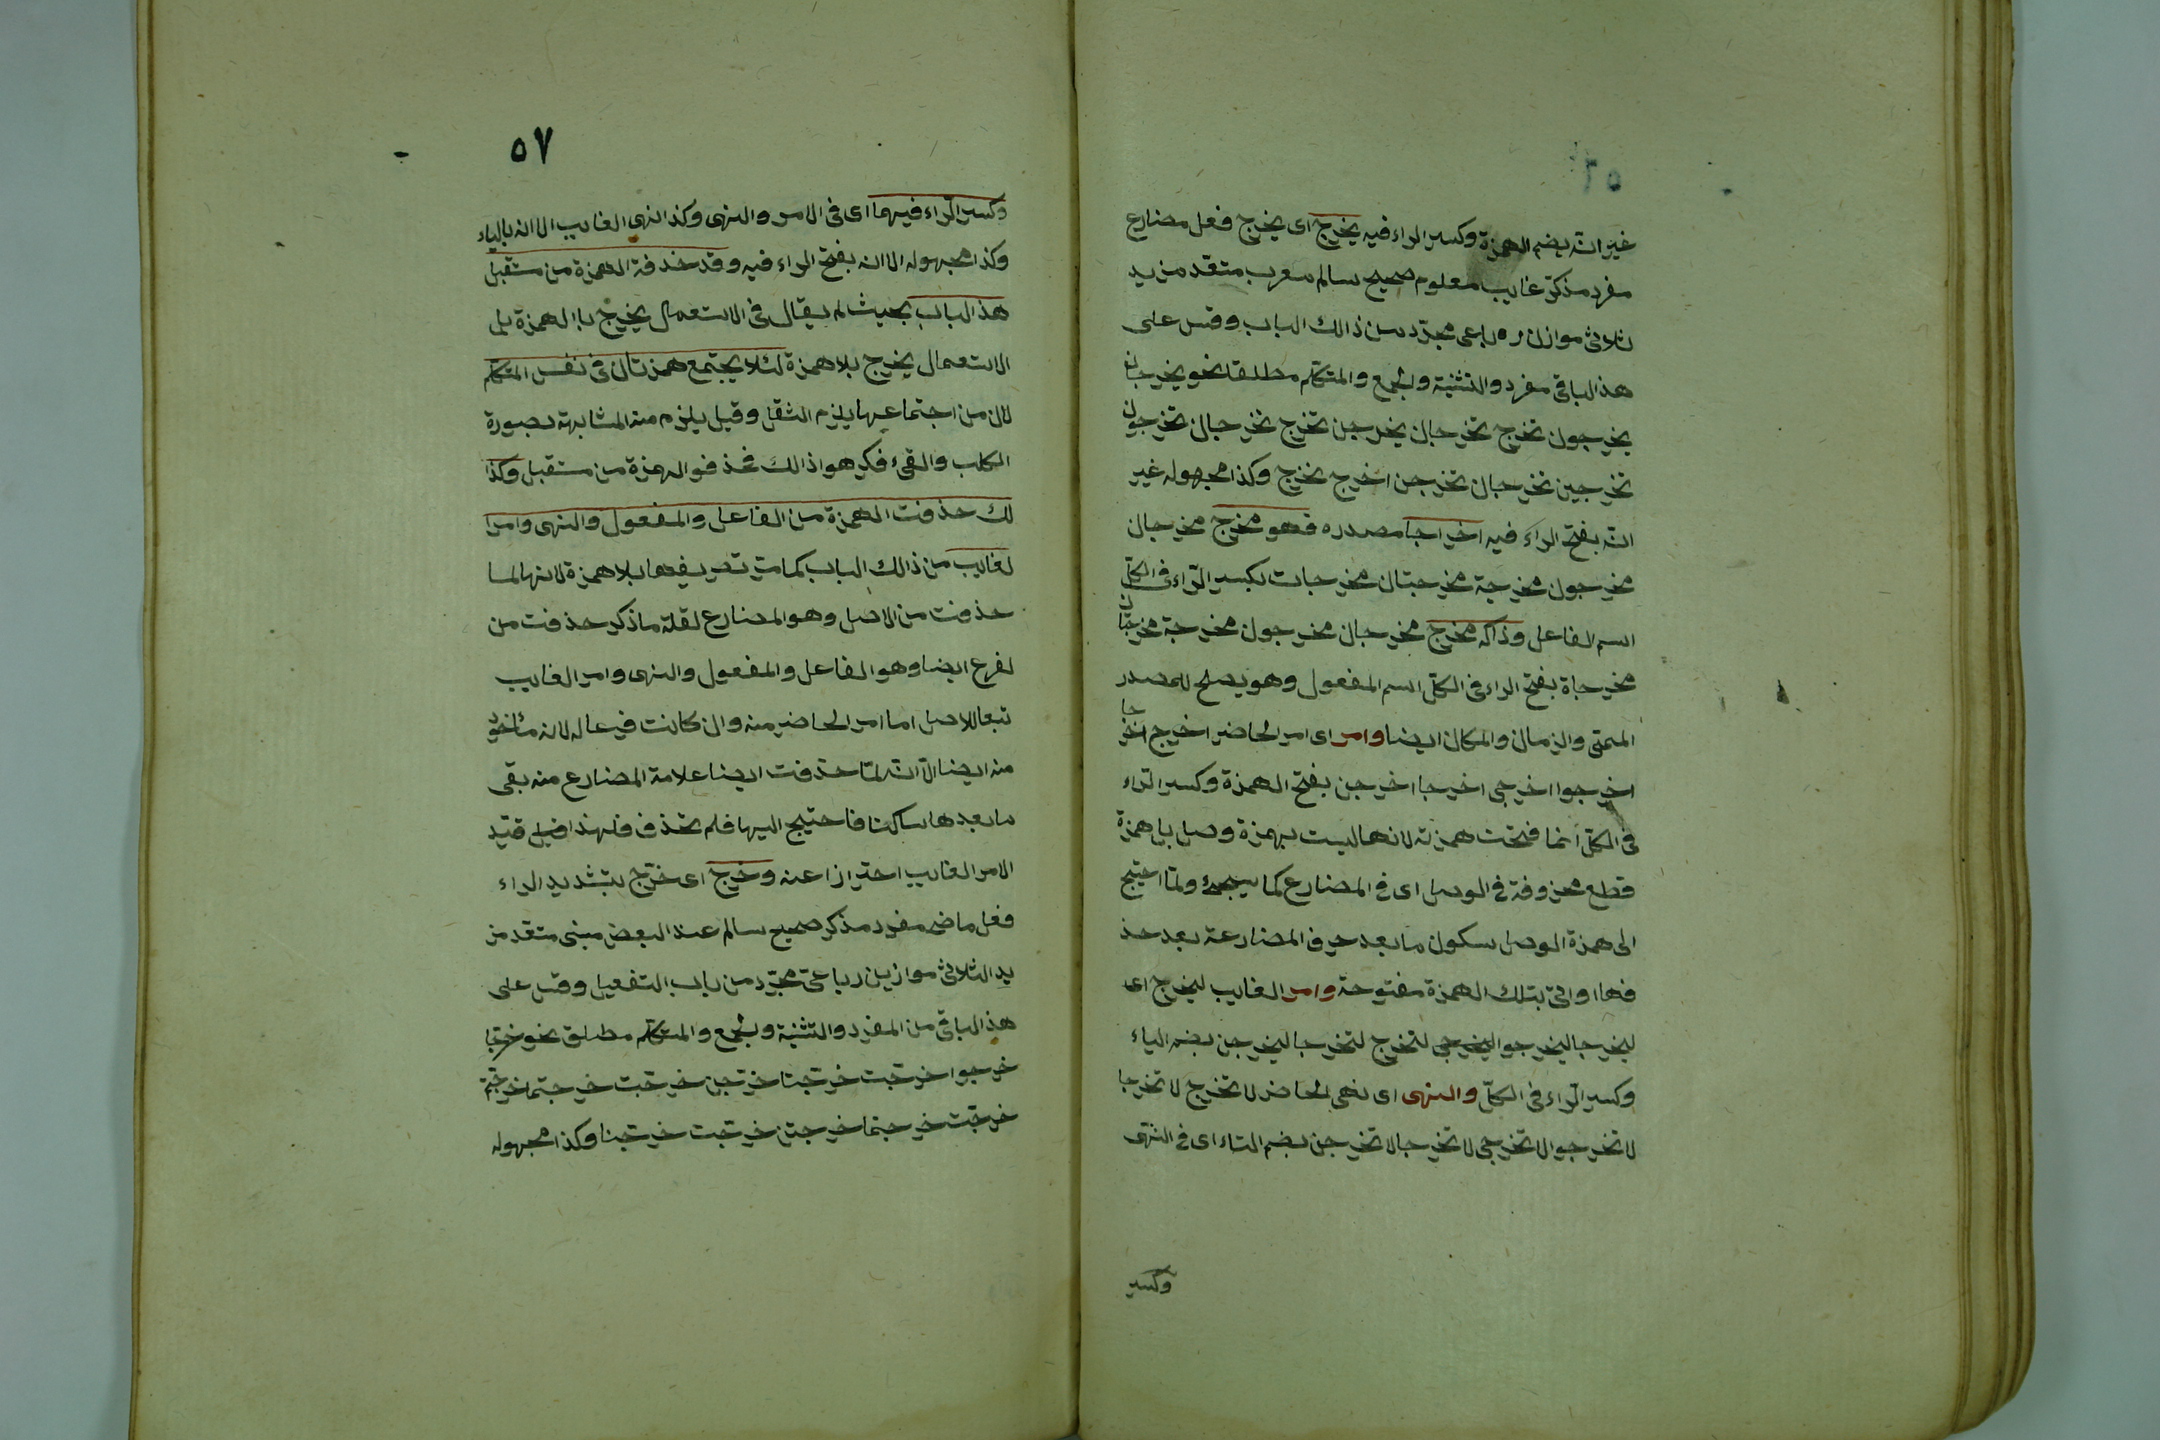 ٥٦
غير انّه بضم الهمزة وكسر الراء فيه يخرج اى يخرج فعل مضارع
مفرد مذكّر غايب معلوم صحيح سالم معرب متعّد مزيد
ثلاثى موازن رباعى مجرّد من ذالك الباب وقس على
هذا الباقى مفرد والتثنية والجمع والمتكلّم مطلقا نحو يخرجان
يخرجون تخرج تخرجان يخرجن تخرج تخرجان تخرجون
تخرجين تخرجان تخرجن اخرج نخرج وكذا مجهوله غير
انّه بفتح الراء فيه اخراجا مصدره فهو مخرج مخرجان
مخرجون مخرجة مخرجتان مخرجات بكسر الرّاء فى الكلّ
اسم الفاعل وذاك مخرج مخرجان مخرجون مخرجة مخرجتان
مخرجاة بفتح الراء فى الكلّ اسم المفعول وهو يصلح للمصدر
الميمى والزمان والمكان ايضا وامر اى امر الحاضر اخرج اخرجا
اخرجوا اخرجى اخرجا اخرجن بفتح الهمزة وكسر الرّاء
فى الكلّ انما فتحت همزته لانها ليست بهمزة وصل بل همزة
قطع محزوفة فى الوصل اى فى المضارع كما سيجئ ولمّا احتيج
الى همزة الوصل بسكون ما بعد حرف المضارعة بعد حذ
فها اوتى بتلك الهمزة مفتوحة وامر الغايب ليخرج اى
ليخرجا ليخرجوا لتخرج لتخرجا ليخرجن بضم الياء
وكسر الرّاء فى الكلّ والنهى اى نهى الحاضر لا تخرج لا تخرجا
لا تخرجوا لا تخرجى لا تخرجا لا تخرجن بضم التاء اى فى النّهى
وكسر
٥٧
وكسر الرّاء فيهما اى فى الامر والنهى وكذا نهى الغايب الا انه بالياء
وكذا مجهوله الا انه بفتح الراء فيه وقد حذفة الهمزة من مستقبل
هذا الباب بحيث لم يقال فى الاستعمال يخرج باالهمزة بل
الاستعمال يخرج بلا همزة لئلا يجتمع همزتان فى نفس المتكلّم
لان من اجتماعها يلزم الثقل وقيل يلزم منه المشابهة بصورة
الكلب والقىء فكرهوا ذالك فحذفوا الهمزة من مستقبل وكذا
لك حذفت الهمزة من الفاعل والمفعول والنهى وامر ا
لغايب من ذالك الباب كما مرّت تصريفها بلا همزة لانها لما
حذفت من الاصل وهو المضارع لقلة ما ذكر حذفت من
لفرع ايضا وهو الفاعل والمفعول والنهى وامر الغايب
تبعا للاصل اما امر الحاضر منه وان كانت فرعا له لانه مأخوذ
منه ايضا الّا انّه لمّا حذفت ايضا علامة المضارع منه بقى
ما بعدها ساكنا فاحتيج اليها فلم تحذف فلهذا قيّد
الامر الغايب احترازا عنه وخرج اى خرّج بتشديد الراء
فعل ماضى مفرد مذكر صحيح سالم عند البعض مبنى متعّد مز
يد الثلاثى موازين رباعىّ مجرّد من باب التفعيل وقس على
هذا الباقى من المفرد والتثنية والجمع والمتكلّم مطلق نحو خرّجا
خرجوا خرّجت خرّجتا خرّجن خرّجت خرجتما خرّجتم
خرّجت خرجتما خرجتنّ خرّجت خرّجنا وكذا مجهوله